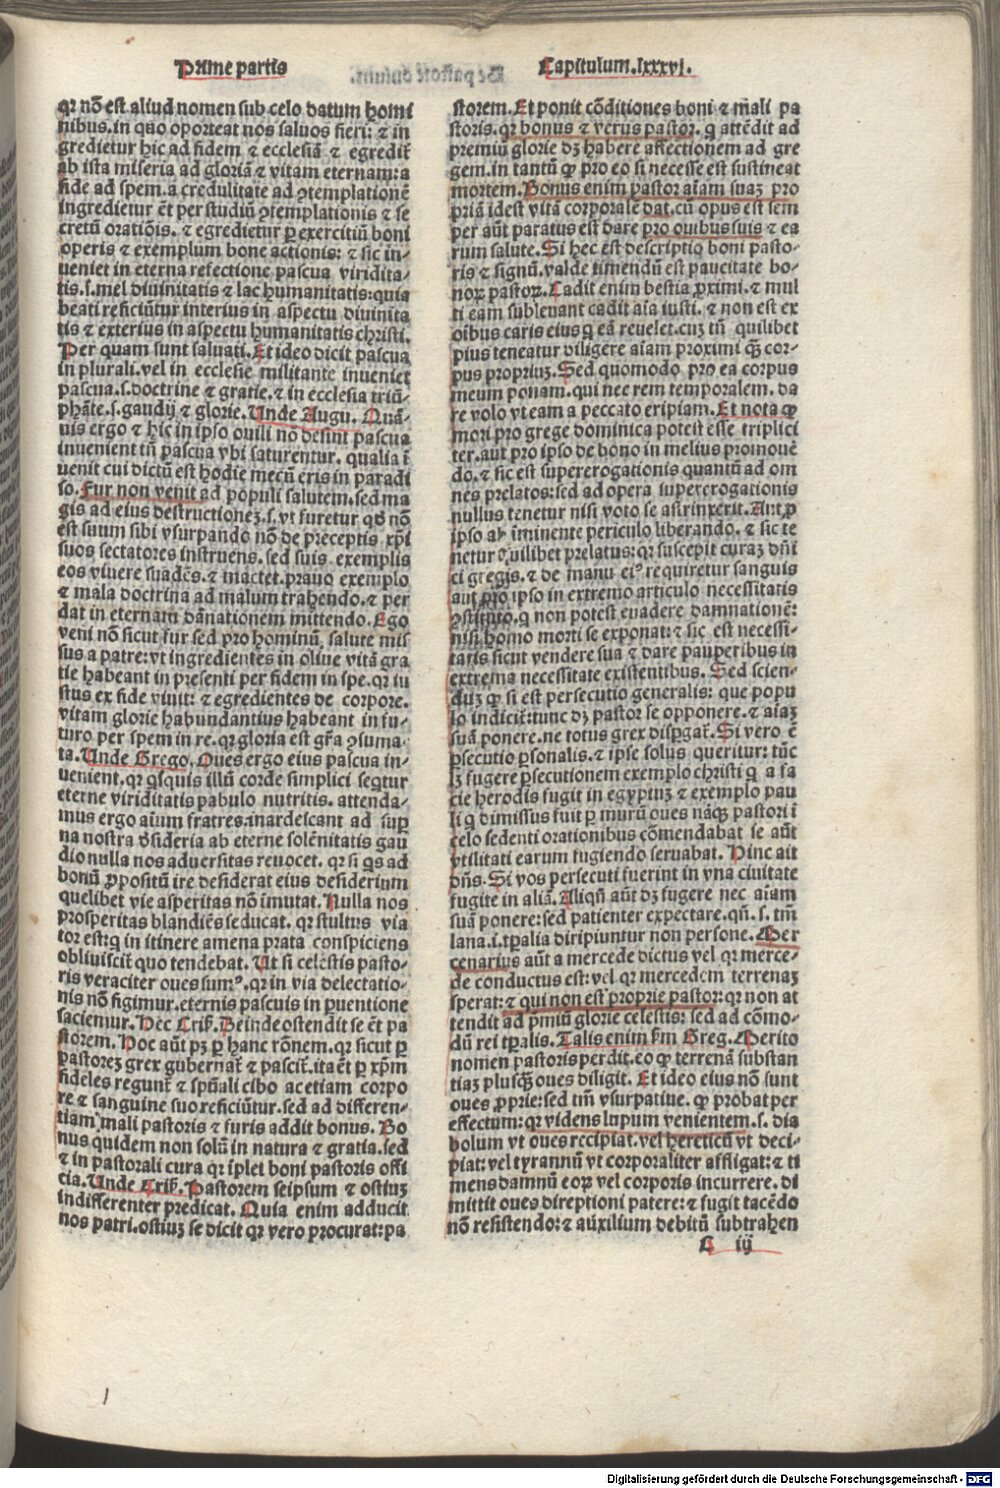 Prime partis
Capitulum.lxxxvj.
qꝛ nō est aliud nomen sub celo datum homi
nibus.in quo oporteat nos saluos fieri: ⁊ in
gredietur hic ad fidem ⁊ ecclesiā ⁊ egredit̄
ab ista miseria ad gloriā ⁊ vitam eternam:a
fide ad spem.a credulitate ad ꝯtemplationē
ingredietur ēt per studiū ꝯtemplationis ⁊ se
cretū orationis. ⁊ egredietur ꝑ exercitiū boni
operis ⁊ exemplum bone actionis: ⁊ sic in-
ueniet in eterna refectione pascua viridita-
tis.s.mel diuinitatis ⁊ lac humanitatis:quia
beati reficiūtur interius in aspectu diuinita
tis ⁊ exterius in aspectu humanitatis christi.
Per quam sunt saluati. Et ideo dicit pascua
in plurali.vel in ecclesie militante inueniet
pascua.s.doctrine ⁊ gratie.⁊ in ecclesia triū-
phāte.s.gaudij ⁊ glorie. Unde Augu. Quā-
uis ergo ⁊ hic in ipso ouili nō desint pascua
inuenient tn̄ pascua vbi saturentur. qualia ī
uenit cui dictū est hodie mecū eris in paradi
so. Fur non venit ad populi salutem.sed ma
gis ad eius destructioneꝫ.s.vt furetur qd̄ nō
est suum sibi vsurpando nō de preceptis xp̄i
suos sectatores instruens. sed suis exemplis
eos viuere suadēs.⁊ mactet.prauo exemplo
⁊ mala doctrina ad malum trahendo.⁊ per
dat in eternam dānationem mittendo. Ego
veni nō sicut fur sed pro hominū salute mis
sus a patre:vt ingredientes in oliue vitā gra
tie habeant in presenti per fidem in spe.qꝛ iu
stus ex fide viuit: ⁊ egredientes de corpore.
vitam glorie habundantius habeant in fu-
turo per spem in re.qꝛ gloria est gr̄a ꝯsuma-
ta. Unde Grego. Oues ergo eius pascua in-
uenient.qꝛ qͥsquis illū corde simplici seqtur
eterne viriditatis pabulo nutritis. attenda-
mus ergo aīum fratres.inardescant ad supꝰ
na nostra dſideria ab eterne solēnitatis gau
dio nulla nos aduersitas reuocet. qꝛ si qͥs ad
bonū ꝓpositū ire desiderat eius desiderium
quelibet vie asperitas nō imutat. Nulla nos
prosperitas blandiēs seducat. qꝛ stultus via
tor est:q̄ in itinere amena prata conspiciens
obliuiscit̄ quo tendebat. Ut si celestis pasto-
ris veraciter oues sumꝰ.qꝛ in via delectatio-
nis nō figimur.eternis pascuis in ꝑuentione
saciemur. Hec Cris. Deinde ostendit se ēt pa
storem. Hoc aūt pꝫ ꝑ hanc rōnem. qꝛ sicut ꝑ
pastoreꝫ grex gubernat̄ ⁊ pascit̄.ita ēt ꝑ xp̄m
fideles regunt̄ ⁊ spūali cibo ac etiam corpo
re ⁊ sanguine suo reficiūtur.sed ad differen-
tiam mali pastoris ⁊ furis addit bonus. Bo
nus quidem non solū in natura ⁊ gratia.sed
⁊ in pastorali cura qꝛ īplet boni pastoris offi
cia. Unde Cris. Pastorem seipsum ⁊ ostiuꝫ
indifferenter predicat. Quia enim adducit
nos patri.ostiuꝫ se dicit qꝛ vero procurat:pa
storem. Et ponit cōditiones boni ⁊ mali pa
storis. qꝛ bonus ⁊ verus pastor. q̄ attēdit ad
premiū glorie dꝫ habere affectionem ad gre
gem.in tantū ꝙ pro eo si necesse est sustineat
mortem. Bonus enim pastor aīam suaꝫ pro
priā idest vitā corporalē dat.cū opus est sem
per aūt paratus est dare pro ouibus suis ⁊ ea
rum salute. Si hec est descriptio boni pasto-
ris ⁊ signū.valde timendū est paucitate bo-
noꝝ pastoꝝ. Cadit enim bestia ꝓximi. ⁊ mul
ti eam subleuant cadit aīa iusti. ⁊ non est ex
oībus caris eius q̄ eā reuelet.cuꝫ tn̄ quilibet
pius teneatur diligere aīam proximi qꝫ cor-
pus propriuꝫ. Sed quomodo pro ea corpus
meum ponam.qui nec rem temporalem. da
re volo vt eam a peccato eripiam. Et nota ꝙ
mori pro grege dominica potest esse triplici
ter.aut pro ipso de bono in melius promouē
do.⁊ sic est supererogationis quantū ad om
nes prelatos:sed ad opera supererogationis
nullus tenetur nisi voto se astrinxerit. Aut ꝓ
ipso ab iminente periculo liberando. ⁊ sic te
netur quilibet prelatus: qꝛ suscepit curaꝫ dn̄i
ci gregis. ⁊ de manu eiꝰ requiretur sanguis
aut pro ipso in extremo articulo necessitatis
ꝯstituto.q̄ non potest euadere damnationē:
nisi homo morti se exponat:⁊ sic est necessi-
tatis sicut vendere sua ⁊ dare pauperibus in
extrema necessitate existentibus. Sed scien-
duꝫ ꝙ si est persecutio generalis: que popu
lo indicit̄:tunc dꝫ pastor se opponere.⁊ aīaꝫ
suā ponere.ne totus grex dispgat̄. Si vero ē
ꝑsecutio ꝑsonalis.⁊ ipse solus queritur: tūc
lꝫ fugere ꝑsecutionem exemplo christi q̄ a fa
cie herodis fugit in egyptuꝫ ⁊ exemplo pau
li q̄ dimissus fuit ꝑ murū oues nāqꝫ pastori ī
celo sedenti orationibus cōmendabat se aūt
vtilitati earum fugiendo seruabat. Hinc ait
dn̄s. Si vos persecuti fuerint in vna ciuitate
fugite in aliā. Aliqn̄ aūt dꝫ fugere nec aīam
suā ponere:sed patienter expectare.qn̄.s.tm̄
lana.i.tꝑalia diripiuntur non persone. Mer
cenarius aūt a mercede dictus vel qꝛ merce-
de conductus est:vel qꝛ mercedem terrenaꝫ
sperat:⁊ qui non est proprie pastor:qꝛ non at
tendit ad p̄miū glorie celestis: sed ad cōmo-
dū rei tꝑalis. Talis enim ẜm Greg. Merito
nomen pastoris perdit.eo ꝙ terrenā substan
tiaꝫ plusqꝫ oues diligit. Et ideo eius nō sunt
oues ꝓprie:sed tm̄ vsurpatiue. ꝙ probat per
effectum:qꝛ videns lupum venientem.s. dia
bolum vt oues recipiat.vel hereticū vt deci-
piat:vel tyrannū vt corporaliter affligat:⁊ ti
mens damnū eoꝝ vel corporis incurrere. di
mittit oues direptioni patere:⁊ fugit tacēdo
nō resistendo:⁊ auxilium debitū subtrahen
G iij
Digitalisierung gefördert durch die Deutsche Forschungsgemeinschaft - DFG